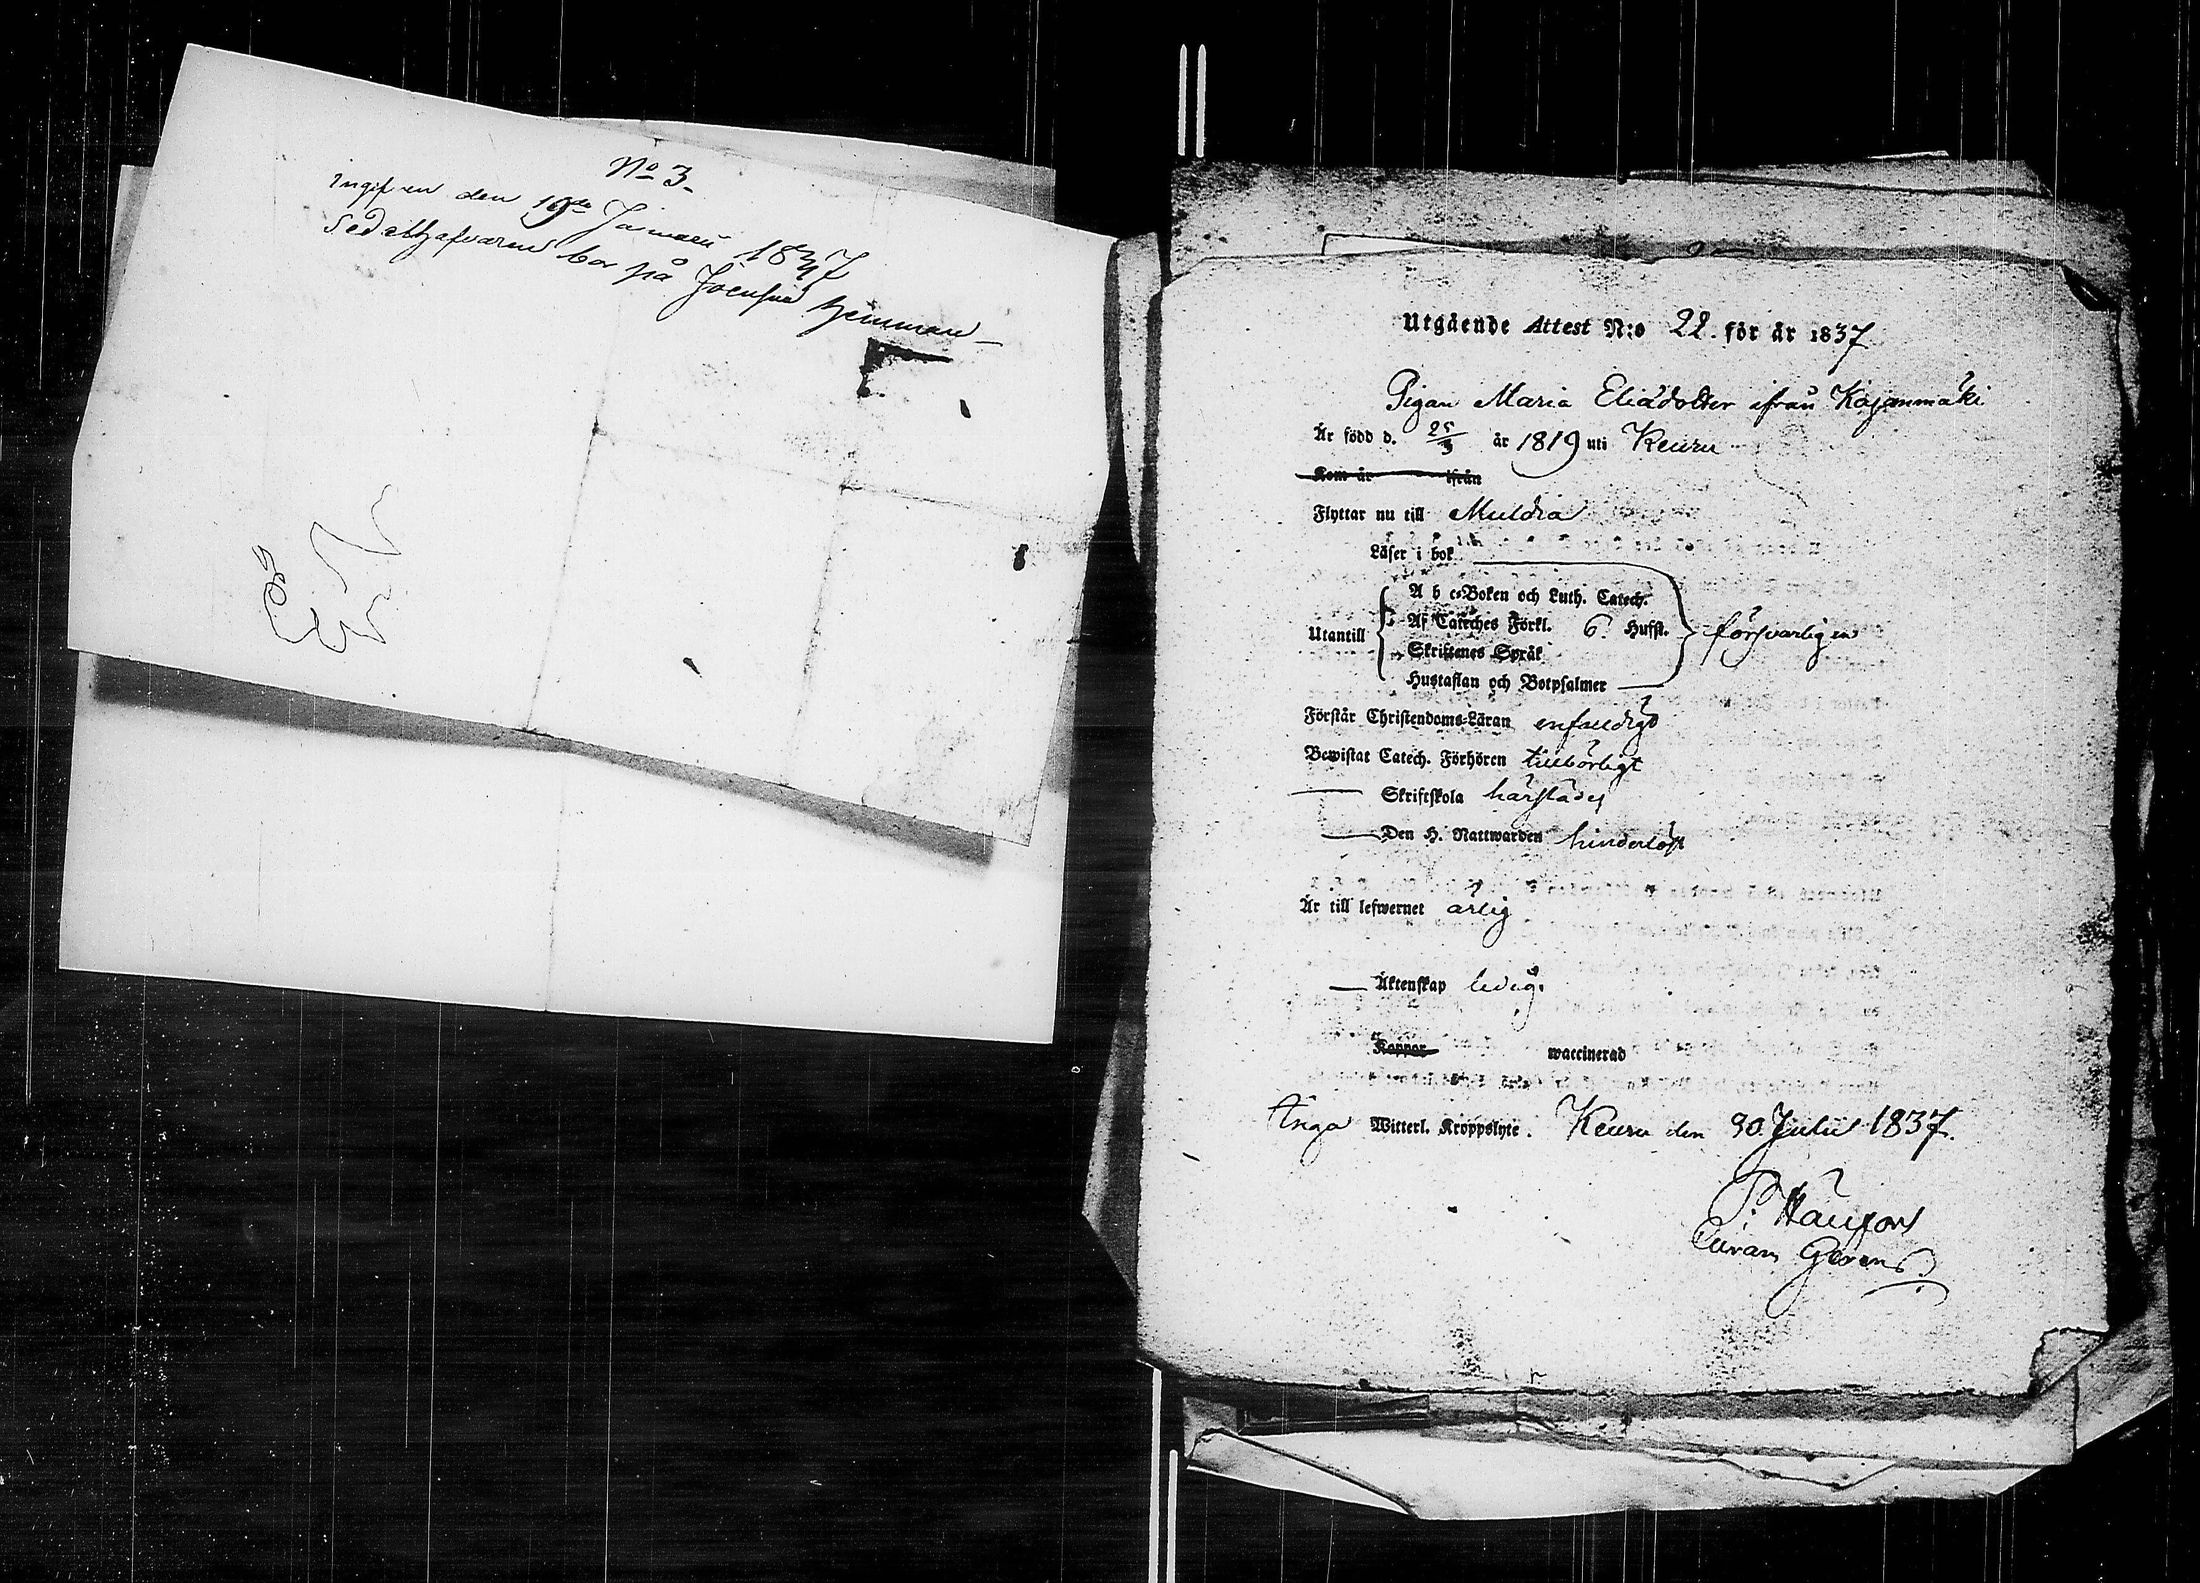 No 3.
Ingifven den 19de Januari 1837
Sedelhafvaren bor på hemman
Utgående Attest N:o 22. för år 1837
Pigan Maria Eliädotter ifrån Kajanmäki
Är född d. 25/3 år 1819 uti Keuru
Kom år ifrån
Flyttar nu till Muldia
Läser i bok
A b c-Boken och Luth. Catech.
Utantill Af Cateches Förkl. 6. Hufst. försvarligen
Skriftenes Språk
Hustaflan och Botpsalmer
Förstår Christendoms-Läran enfaldigt
Bewistat Catech. Förhören tillbörligt
Skriftskola härstädes
Den H. Nattwarden hinderlöst
Är till lefwernet ärlig
Äktenskap ledig.
Koppor waccinerad
Inga Witterl. Kroppslyte. Keuru den 30. Julii 1837.
Curam Gerens.